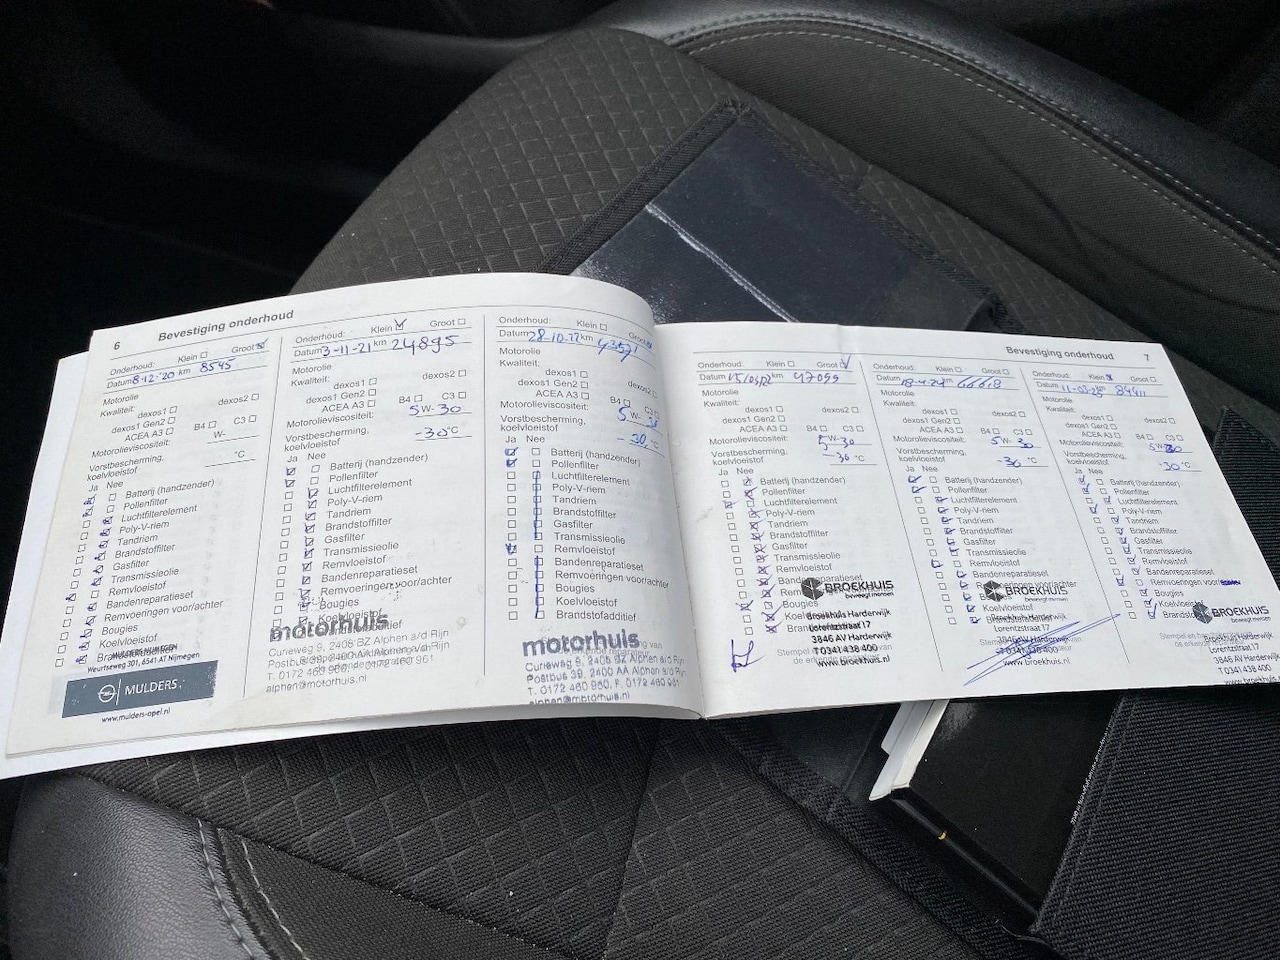 6 Bevestiging onderhoud
Onderhoud: Klein Groot
Datum 8-12-'20 km 8545
Motorolie
Kwaliteit:
dexos1 dexos2
dexos1 Gen2
ACEA A3 B4 C3
Motorolieviscositeit: W-
Vorstbescherming,
koelvloeistof °C
Ja Nee
Batterij (handzender)
Pollenfilter
Luchtfilterelement
Poly-V-riem
Tandriem
Brandstoffilter
Gasfilter
Transmissieolie
Remvloeistof
Bandenreparatieset
Remvoeringen voor/achter
Bougies
Koelvloeistof
MULDERS NIJMEGEN
Weurtseweg 301, 6541 AT Nijmegen
MULDERS
www.mulders-opel.nl
Onderhoud: Klein Groot
Datum 3-11-21 km 24895
Motorolie
Kwaliteit:
dexos1 dexos2
dexos1 Gen2
ACEA A3 B4 C3
Motorolieviscositeit: 5W-30
Vorstbescherming,
koelvloeistof -30°C
Ja Nee
Batterij (handzender)
Pollenfilter
Luchtfilterelement
Poly-V-riem
Tandriem
Brandstoffilter
Gasfilter
Transmissieolie
Remvloeistof
Bandenreparatieset
Remvoeringen voor/achter
Bougies
Koelvloeistof
motorhuis
Curieweg 9, 2408 BZ Alphen a/d Rijn
Postbus 39, 2400 AA Alphen a/d Rijn
T. 0172 460 960, F. 0172 460 961
alphen@motorhuis.nl
Onderhoud: Klein Groot
Datum 28-10-22 km
Motorolie
Kwaliteit:
dexos1 dexos2
dexos1 Gen2
ACEA A3 B4 C3
Motorolieviscositeit: 5 W- 30
Vorstbescherming,
koelvloeistof -30 °C
Ja Nee
Batterij (handzender)
Pollenfilter
Luchtfilterelement
Poly-V-riem
Tandriem
Brandstoffilter
Gasfilter
Transmissieolie
Remvloeistof
Bandenreparatieset
Remvoeringen voor/achter
Bougies
Koelvloeistof
Brandstofadditief
motorhuis
Curieweg 9, 2408 BZ Alphen a/d Rijn
Postbus 39, 2400 AA Alphen a/d Rijn
T. 0172 460 960, F. 0172 460 961
alphen@motorhuis.nl
Bevestiging onderhoud 7
Onderhoud: Klein Groot
Datum km 47099
Motorolie
Kwaliteit:
dexos1 dexos2
dexos1 Gen2
ACEA A3 B4 C3
Motorolieviscositeit: 5W-30
Vorstbescherming,
koelvloeistof -30 °C
Ja Nee
Batterij (handzender)
Pollenfilter
Luchtfilterelement
Poly-V-riem
Tandriem
Brandstoffilter
Gasfilter
Transmissieolie
Remvloeistof
Bougies
BROEKHUIS
beweegt mensen
Broekhuis Harderwijk
Lorentzstraat 17
3846 AV Harderwijk
T 0341 438 400
www.broekhuis.nl
Onderhoud: Klein Groot
Datum km 66618
Motorolie
Kwaliteit:
dexos1 dexos2
dexos1 Gen2
ACEA A3 B4 C3
Motorolieviscositeit: 5W-30
Vorstbescherming,
koelvloeistof -30 °C
Ja Nee
Batterij (handzender)
Pollenfilter
Luchtfilterelement
Poly-V-riem
Tandriem
Brandstoffilter
Gasfilter
Transmissieolie
Remvloeistof
Bandenreparatieset
BROEKHUIS
beweegt mensen
Broekhuis Harderwijk
Lorentzstraat 17
3846 AV Harderwijk
T 0341 438 400
www.broekhuis.nl
Onderhoud: Klein Groot
Datum km 84411
Motorolie
Kwaliteit:
dexos1 dexos2
dexos1 Gen2
ACEA A3 B4 C3
Motorolieviscositeit: 5W-30
Vorstbescherming,
koelvloeistof -30 °C
Ja Nee
Batterij (handzender)
Pollenfilter
Luchtfilterelement
Poly-V-riem
Tandriem
Brandstoffilter
Gasfilter
Transmissieolie
Remvloeistof
Bandenreparatieset
Remvoeringen voor
Bougies
Koelvloeistof
BROEKHUIS
beweegt mensen
Broekhuis Harderwijk
Lorentzstraat 17
3846 AV Harderwijk
T 0341 438 400
www.broekhuis.nl